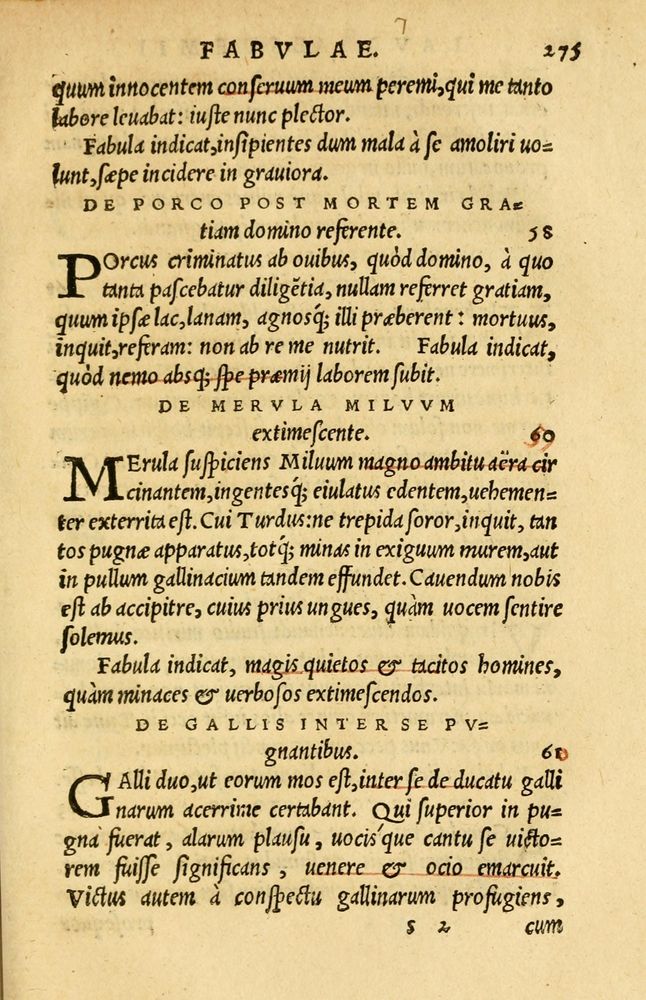 7
FABVLAE. 275
quum innocentem conseruum meum peremi, qui me tanto
labore leuabat: iuste nunc plector.
Fabula indicat, insipientes dum mala à se amoliri uo-
lunt, sæpe incidere in grauiora.
DE PORCO POST MORTEM GRA-
tiam domino referente. 58
POrcus criminatus ab ouibus, quòd domino, à quo
tanta pascebatur diligẽtia, nullam referret gratiam,
quum ipsæ lac, lanam, agnosq́; illi præberent: mortuus,
inquit, referam: non ab re me nutrit. Fabula indicat,
quòd nemo absq; spe præmij laborem subit.
DE MERVLA MILVVM
extimescente. 60
MErula suspiciens Miluum magno ambitu aëra cir
cinantem, ingentesq́; eiulatus edentem, uehemen-
ter exterrita est. Cui Turdus: ne trepida soror, inquit, tan
tos pugnæ apparatus, totq́; minas in exiguum murem, aut
in pullum gallinacium tandem effundet. Cauendum nobis
est ab accipitre, cuius prius ungues, quàm uocem sentire
solemus.
Fabula indicat, magis quietos & tacitos homines,
quàm minaces & uerbosos extimescendos.
DE GALLIS INTER SE PV-
gnantibus. 61
GAlli duo, ut eorum mos est, inter se de ducatu galli
narum acerrime certabant. Qui superior in pu-
gna fuerat, alarum plausu, uocis´que cantu se uicto-
rem fuisse significans, uenere & ocio emarcuit.
Victus autem à conspectu gallinarum profugiens,
s 2 cum